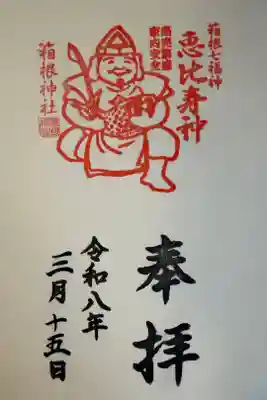 箱根七福神
恵比寿神
箱根神社
奉拝
令和八年
三月十五日